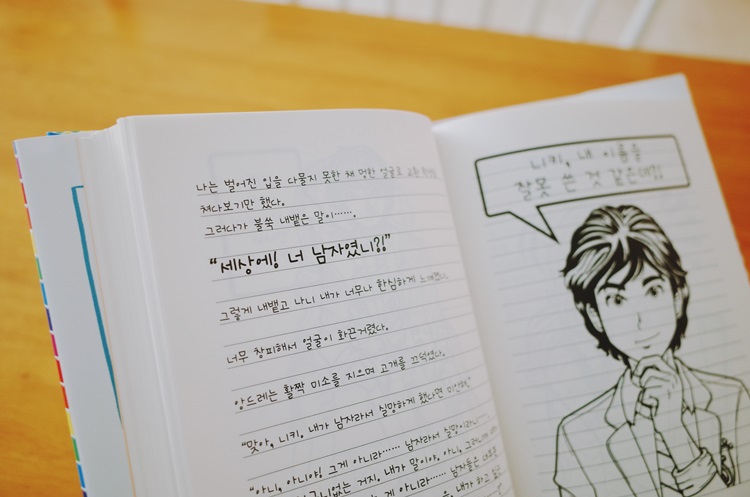 나는 벌어진 입을 다물지 못한 채 멍한 얼굴로 교환
쳐다보기만 했다.
그러다가 불쑥 내뱉은 말이…….
“세상에! 너 남자였니?!”
그렇게 내뱉고 나니 내가 너무나 한심하게 느껴졌다.
너무 창피해서 얼굴이 화끈거렸다.
앙드레는 활짝 미소를 지으며 고개를 끄덕였다.
“맞아, 니키. 내가 남자라서 실망하게 했다면 미안해.”
“아니, 아니야! 그게 아니라…… 남자라서 실망이라니……
없는 거지. 내가 말이야, 아니, 그러니까
게 아니라…… 남자들은 대
내가 하고 싶은
니키, 내 이름을
잘못 쓴 것 같은데?